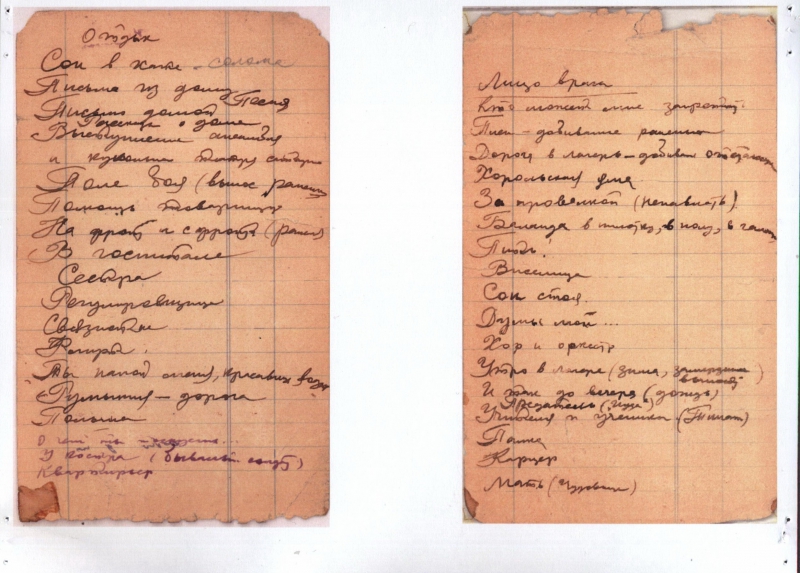 Отдых
Сон в хате - солома
Письма из дому
Песня
Письмо домой
о доме
Выступление ансамбля
и кукольн театра
Поле боя (вынос раненых)
Помощь товарищу
На фронт и с фронта (ранен)
В госпитале
Сестра
Регулировщица
Связистки
Ты напой меня, красавица
Румыния - дорога
Польша
О чем ты
У костра (бывалый солдат)
Квартирьер
Лицо врага
Кто может мне запретить
Плен - добивание раненых
Дорога в лагерь - добивал отстающих
Хорольская яма
За проволкой (ненависть)
Баланда в пилотку, в полу, в
Люди!
Виселица
Сон стоя.
Думы мои...
Хор и оркестр
Утро в лагере (зима, замерзших
)
И так до вечера (дождь)
Предатель (Иуда)
и ученики
Пайка
Карцер
Мать